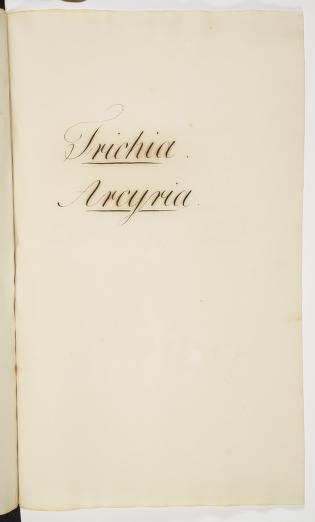 Trichia.
Arcyria.